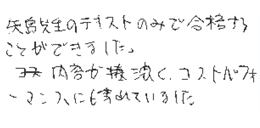 矢島先生のテキストのみで合格する
ことができました。
内容が濃く、コストパフォ
ーマンスにも優れていました